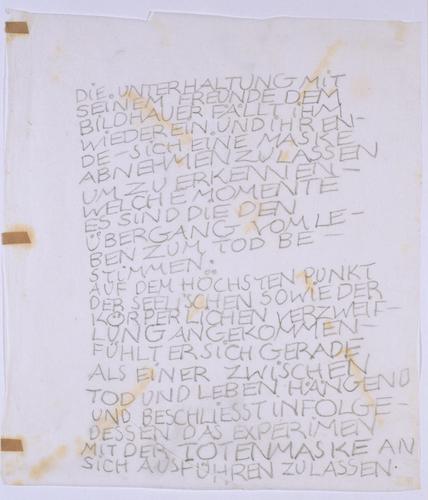 DIE UNTERHALTUNG MIT
SEINEM FREUNDE DEM
BILDHAUER FÄLLT IHM
WIEDER EIN. UND IHR EN-
DE – SICH EINE MASKE
ABNEHMEN ZU LASSEN
UM ZU ERKENNEN –
WELCHE MOMENTE
ES SIND DIE DEN
ÜBERGANG VOM LE-
BEN ZUM TOD BE-
STIMMEN:
AUF DEM HÖCHSTEN PUNKT
DER SEELISCHEN SOWIE DER
KÖRPERLICHEN VERZWEIF-
LUNG ANGEKOMMEN –
FÜHLT ER SICH GERADE
ALS EINER ZWISCHEN
TOD UND LEBEN HÄNGEND
UND BESCHLIESST INFOLGE-
DESSEN DAS EXPERIMEN
MIT DER TOTENMASKE AN
SICH AUSFÜHREN ZU LASSEN.